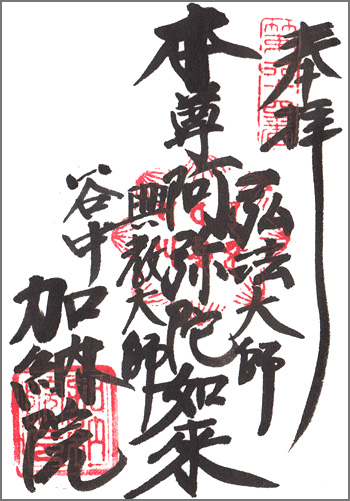 奉拝
弘法大師
本尊阿弥陀如来
興教大師
谷中
加納院